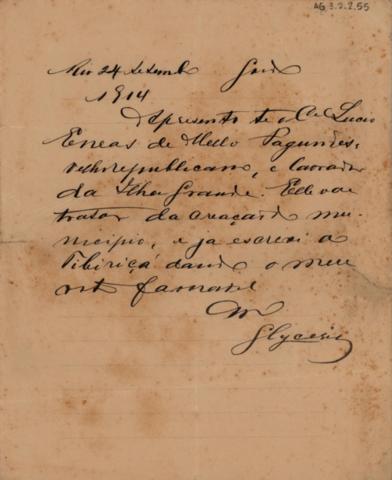 AG 3.2.2.55
Rio 24 Setembro
1914
Apresento te o Cel Lucio
Eneas de Mello Fagundes,
velho republicano, e lavrador
da Ilha Grande. Elle vae
tratar da creação do mu-
nicipio, e ja escrevi a
Tibiriçá dando o meu
voto favoravel
Glycerio